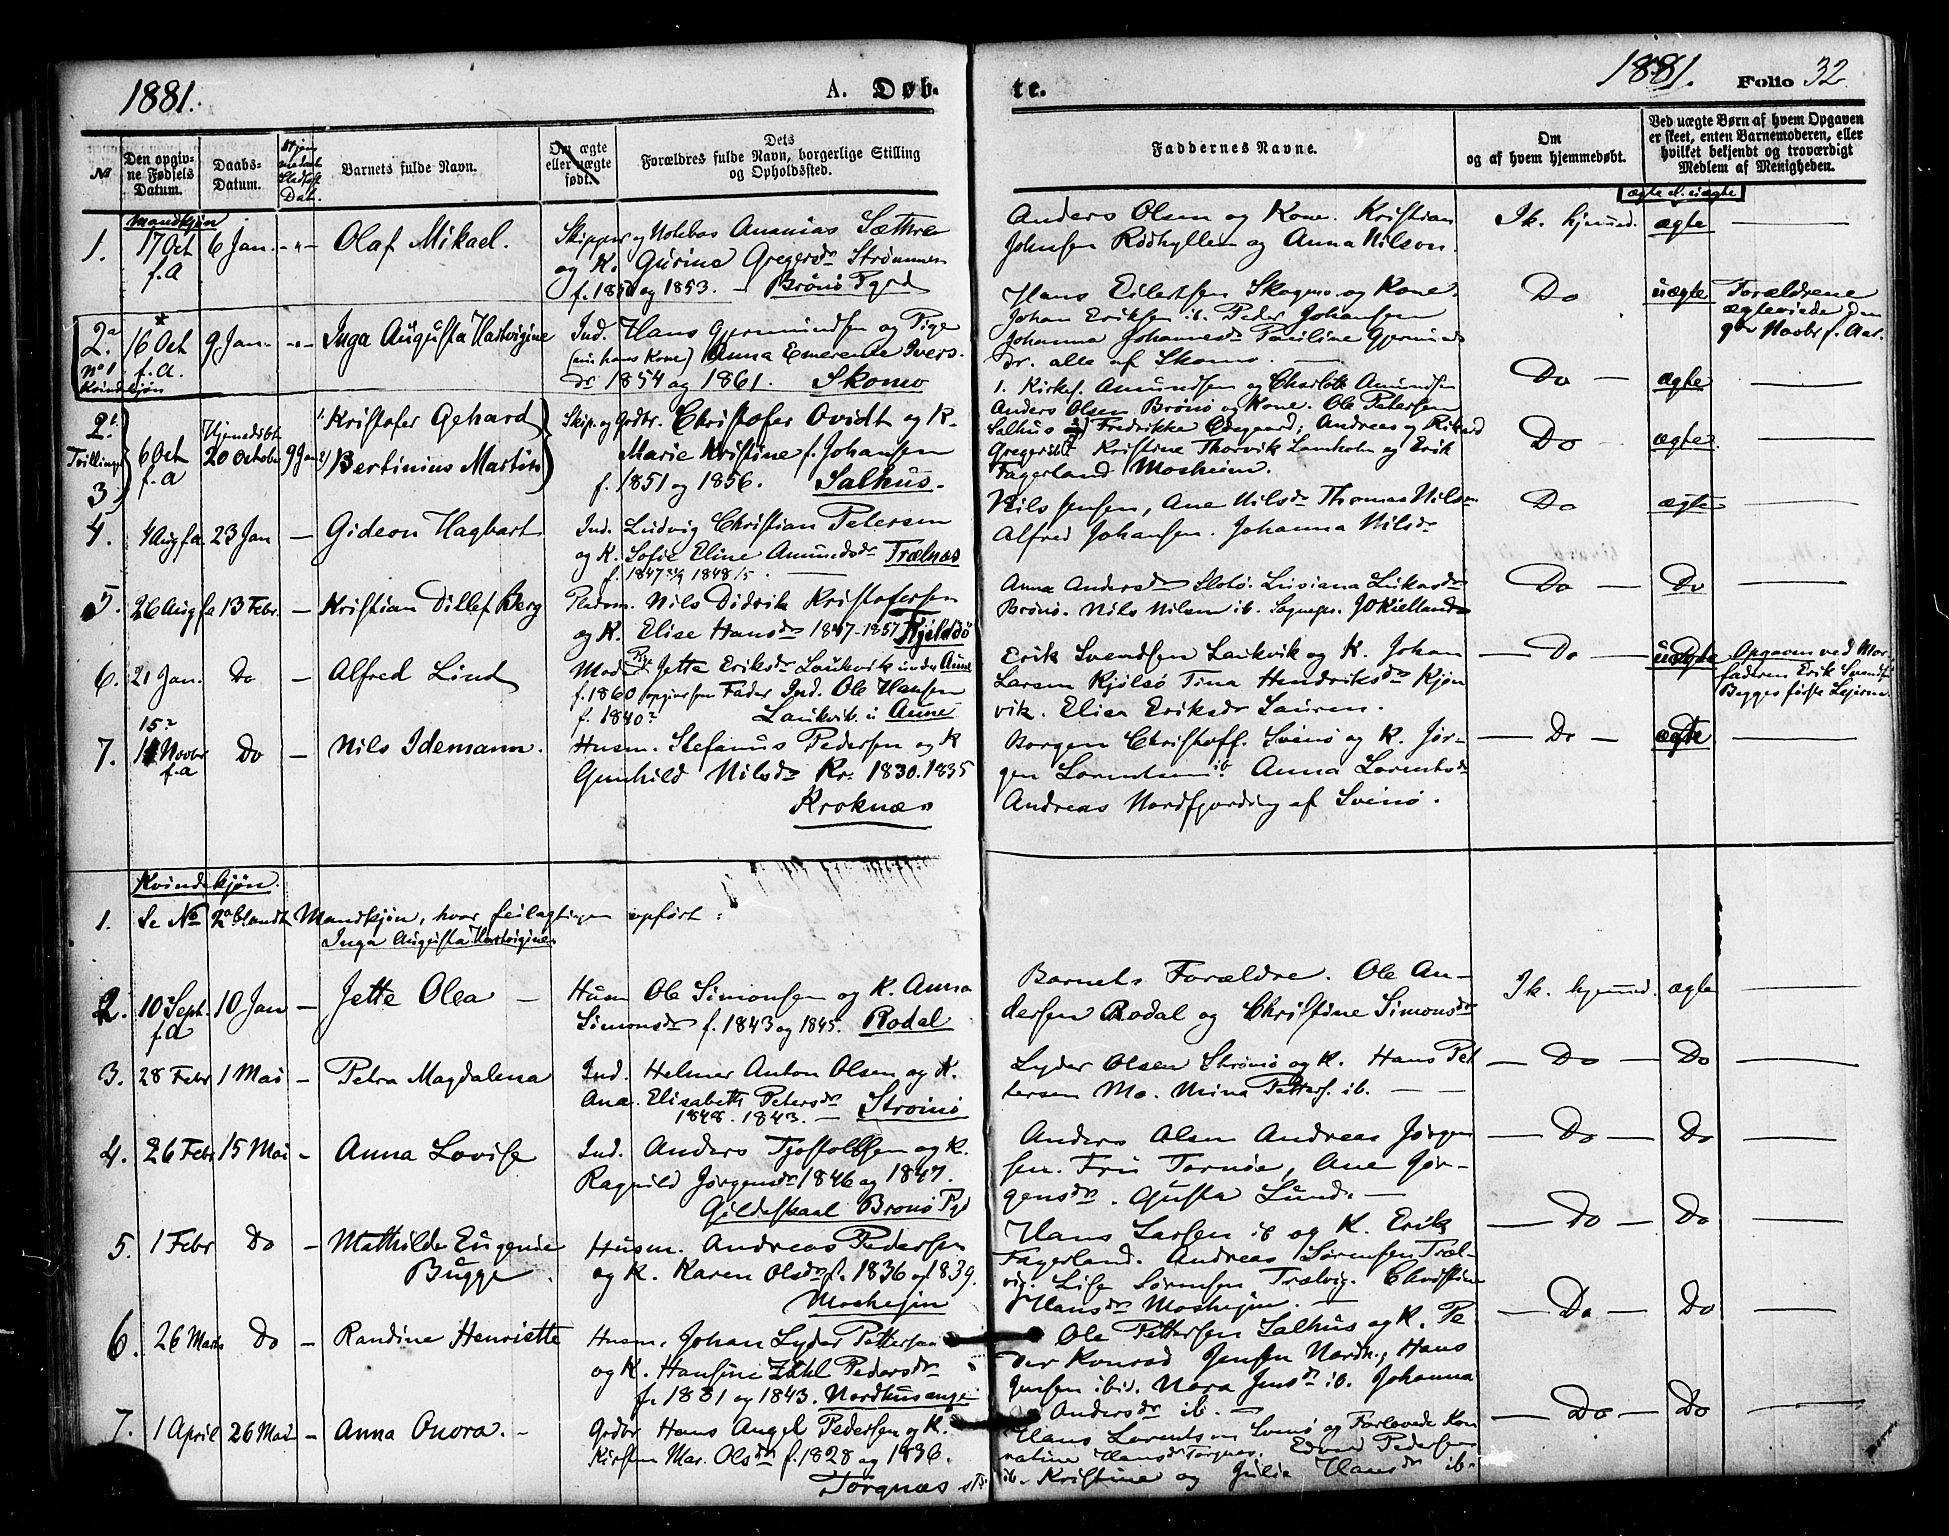 1881.
A. Døb-
te.
1881.
Folio 32.
№
Den opgiv-
ne Fødsels
Datum.
Daabs-
Datum.
Barnets fulde Navn.
Om ægte
eller uægte
født.
Dets
Forældres fulde Navn, borgerlige Stilling
og Opholdssted.
Faddernes Navne.
Om
og af hvem hjemmedøbt.
Ved uægte Børn af hvem Opgaven
er skeet, enten Barnemoderen, eller
hvilket bekjendt og troværdigt
Medlem af Menigheden.
ægte el. uægte
Mandkjøn
1. 17 Oct f.A 6 Jan. - " - Olaf Mikael.
Skipper og Notebas Ananias Sæthre
og K. Gurine Gregersdr Strømmen
f. 1850 og 1853. — Brønø Pgd
Anders Olsen og Kone. Kristian
Johnsen Rødhyllen og Anna Nilsen.
Ik. hjemmed. ægte
2a № 1 Kvindekjøn 16 Oct f.a. 9 Jan. - " - Inga Augusta Hartvigine
Ind. Hans Gjermundsen og Pige
(nu hans Kone) Anna Emerense Ivers-
dr 1854 og 1861. Skomo
Hans Eilertsen Skogmo og Kone.
Johan Eriksen ib. Peder Johansen
Johanna Johannesdr Pauline Gjermunds
dr. alle af Skomo.
Do uægte Forældrene
ægteviede den
9de Novbr f. Aar.
2b. Tvillinger 3. 6 Oct f.a Hjemedøbt 20 October 9 Jan
1) Kristofer Gehard
2) Bertinius Martin
Skip. og Grdbr. Christofer Ovidt og K.
Marie Kristine f. Johansen
f. 1851 og 1856. Salhus.
1. Kirkes. Amundsen og Charlotte Amundsen
Anders Olsen Brønø og Kone. Ole Petersen
Salhus 2) Fredrikke Odegaard; Andreas og Rikard
Kristine Thorvik Lamholm og Erik
Fagerland Mosheim.
Do — ægte
Do ægte
4. 4 Aug f.a 23 Jan — Gideon Hagbart
Ind. Ludvig Christian Petersen
og K. Sofie Eline Amundsdr Trælnæs
f. 1847 1848
Nils Jensen, Ane Nilsdr Thomas Nilsen
Alfred Johansen. Johanna Nilsdr
Do ægte
5. 26 Aug f.a 13 Febr. — Kristian Dillef Berg
Pladsm. Nils Didrik Kristofersen
og K. Elise Hansdr 1847-1857 Kjeldsø
Anna Andersdr Slotø. Lusiana Lukasdr
Brønø. Nils Nilsen ib. JO Kiellands
Do — Do
6. 21 Jan. Do — Alfred Lind
Mod. Pige Jette Eriksdr Laukvik under Aune
f. 1860 opgiven Fader Ind. Ole Hansen
f. 1840? Laukvik u Aune
Erik Svendsen Laukvik og K. Johan
Larsen Kjølsø Tina Hendriksdr Kjøn
vik. Elise Eriksdr Sauren.
— Do — uægte Opgaven ved Mor-
faderen Erik Svends.
Begges første Lejerm.
7. 15? 11 Novbr f.a Do — Nils Idemann.
Husm. Stefanus Pedersen og K
Gunhild Nilsdr Kr. 1830. 1835
Kroknæs
Borgen Christoff. Svinø og K. Jør-
gen Lorentsen ib. Anna Lorentsdr
Andreas Nordfjording af Svinø.
— Do — ægte
Kvindekjøn.
1. Se No 2a blandt Mandkjøn, hvor feilagtigen opført:
Inga Augusta Hartvigine
2. 10 Sept. f.a 10 Jan — Jette Olea —
Husm Ole Simonsen og K. Anna
Simonsdr f. 1843 og 1845. Rodal
Barnets Forældre. Ole An-
dersen Rodal og Christine Simonsdr
Ik. hjemmed. ægte
3. 28 Febr 1 Mai — Petra Magdalena
Ind. Helmer Anton Olsen og K.
Ana Elisabeth Petersdr
1848. 1843. — Strømø
Lyder Olsen Strømø og K. Hans Pet
tersen Mo. Mina Petters. ib. —
— Do — Do
4. 26 Febr 15 Mai - Anna Lovise
Ind. Anders Tjostolfsen og K.
Ragnild Jørgensdr 1846 og 1847.
Gildeskaal Brønø Pgd
Anders Olsen Andreas Jørgen
sen. Fru Tornøe, Ane Jør-
gensdr. Gusta Lund. —
— Do — Do
5. 1 Febr Do — Mathilde Eugenie
Bugge.
Husm. Andreas Pedersen
og K. Karen Olsdr f. 1836 og 1839.
Moshejm
Hans Larsen ib og K. Erik
Fagerland. Andreas Sørensen Træl-
vig. Lise Sørensen Trælvig. Christine
Hansdr Moshejm. —
— Do — Do
6. 26 Marts Do — Randine Henriette
Husm. Johan Lyder Pettersen
og K. Hansine Pedersdr
f. 1831 og 1843. Nordhusange
Ole Pettersen Salhus og K. Pe-
der Konrad Jensen Nordh., Hans
Jensen ibid. Nora Jensdr ib. Johanna
Andersdr ib. —
— Do — Do
7. 1 April 26 Mai — Anna Onora. —
Grdbr Hans Angel Pedersen og K.
Kirsten Mar. Olsdr f. 1828 og 1836.
Torgnæs
Hans Lorentsen Svinø og Forlovede Kon
natine Hansdr Torgnæs. Edvard Pedersen
ib. Kristine og Julie Hansdr ib.
— Do — Do